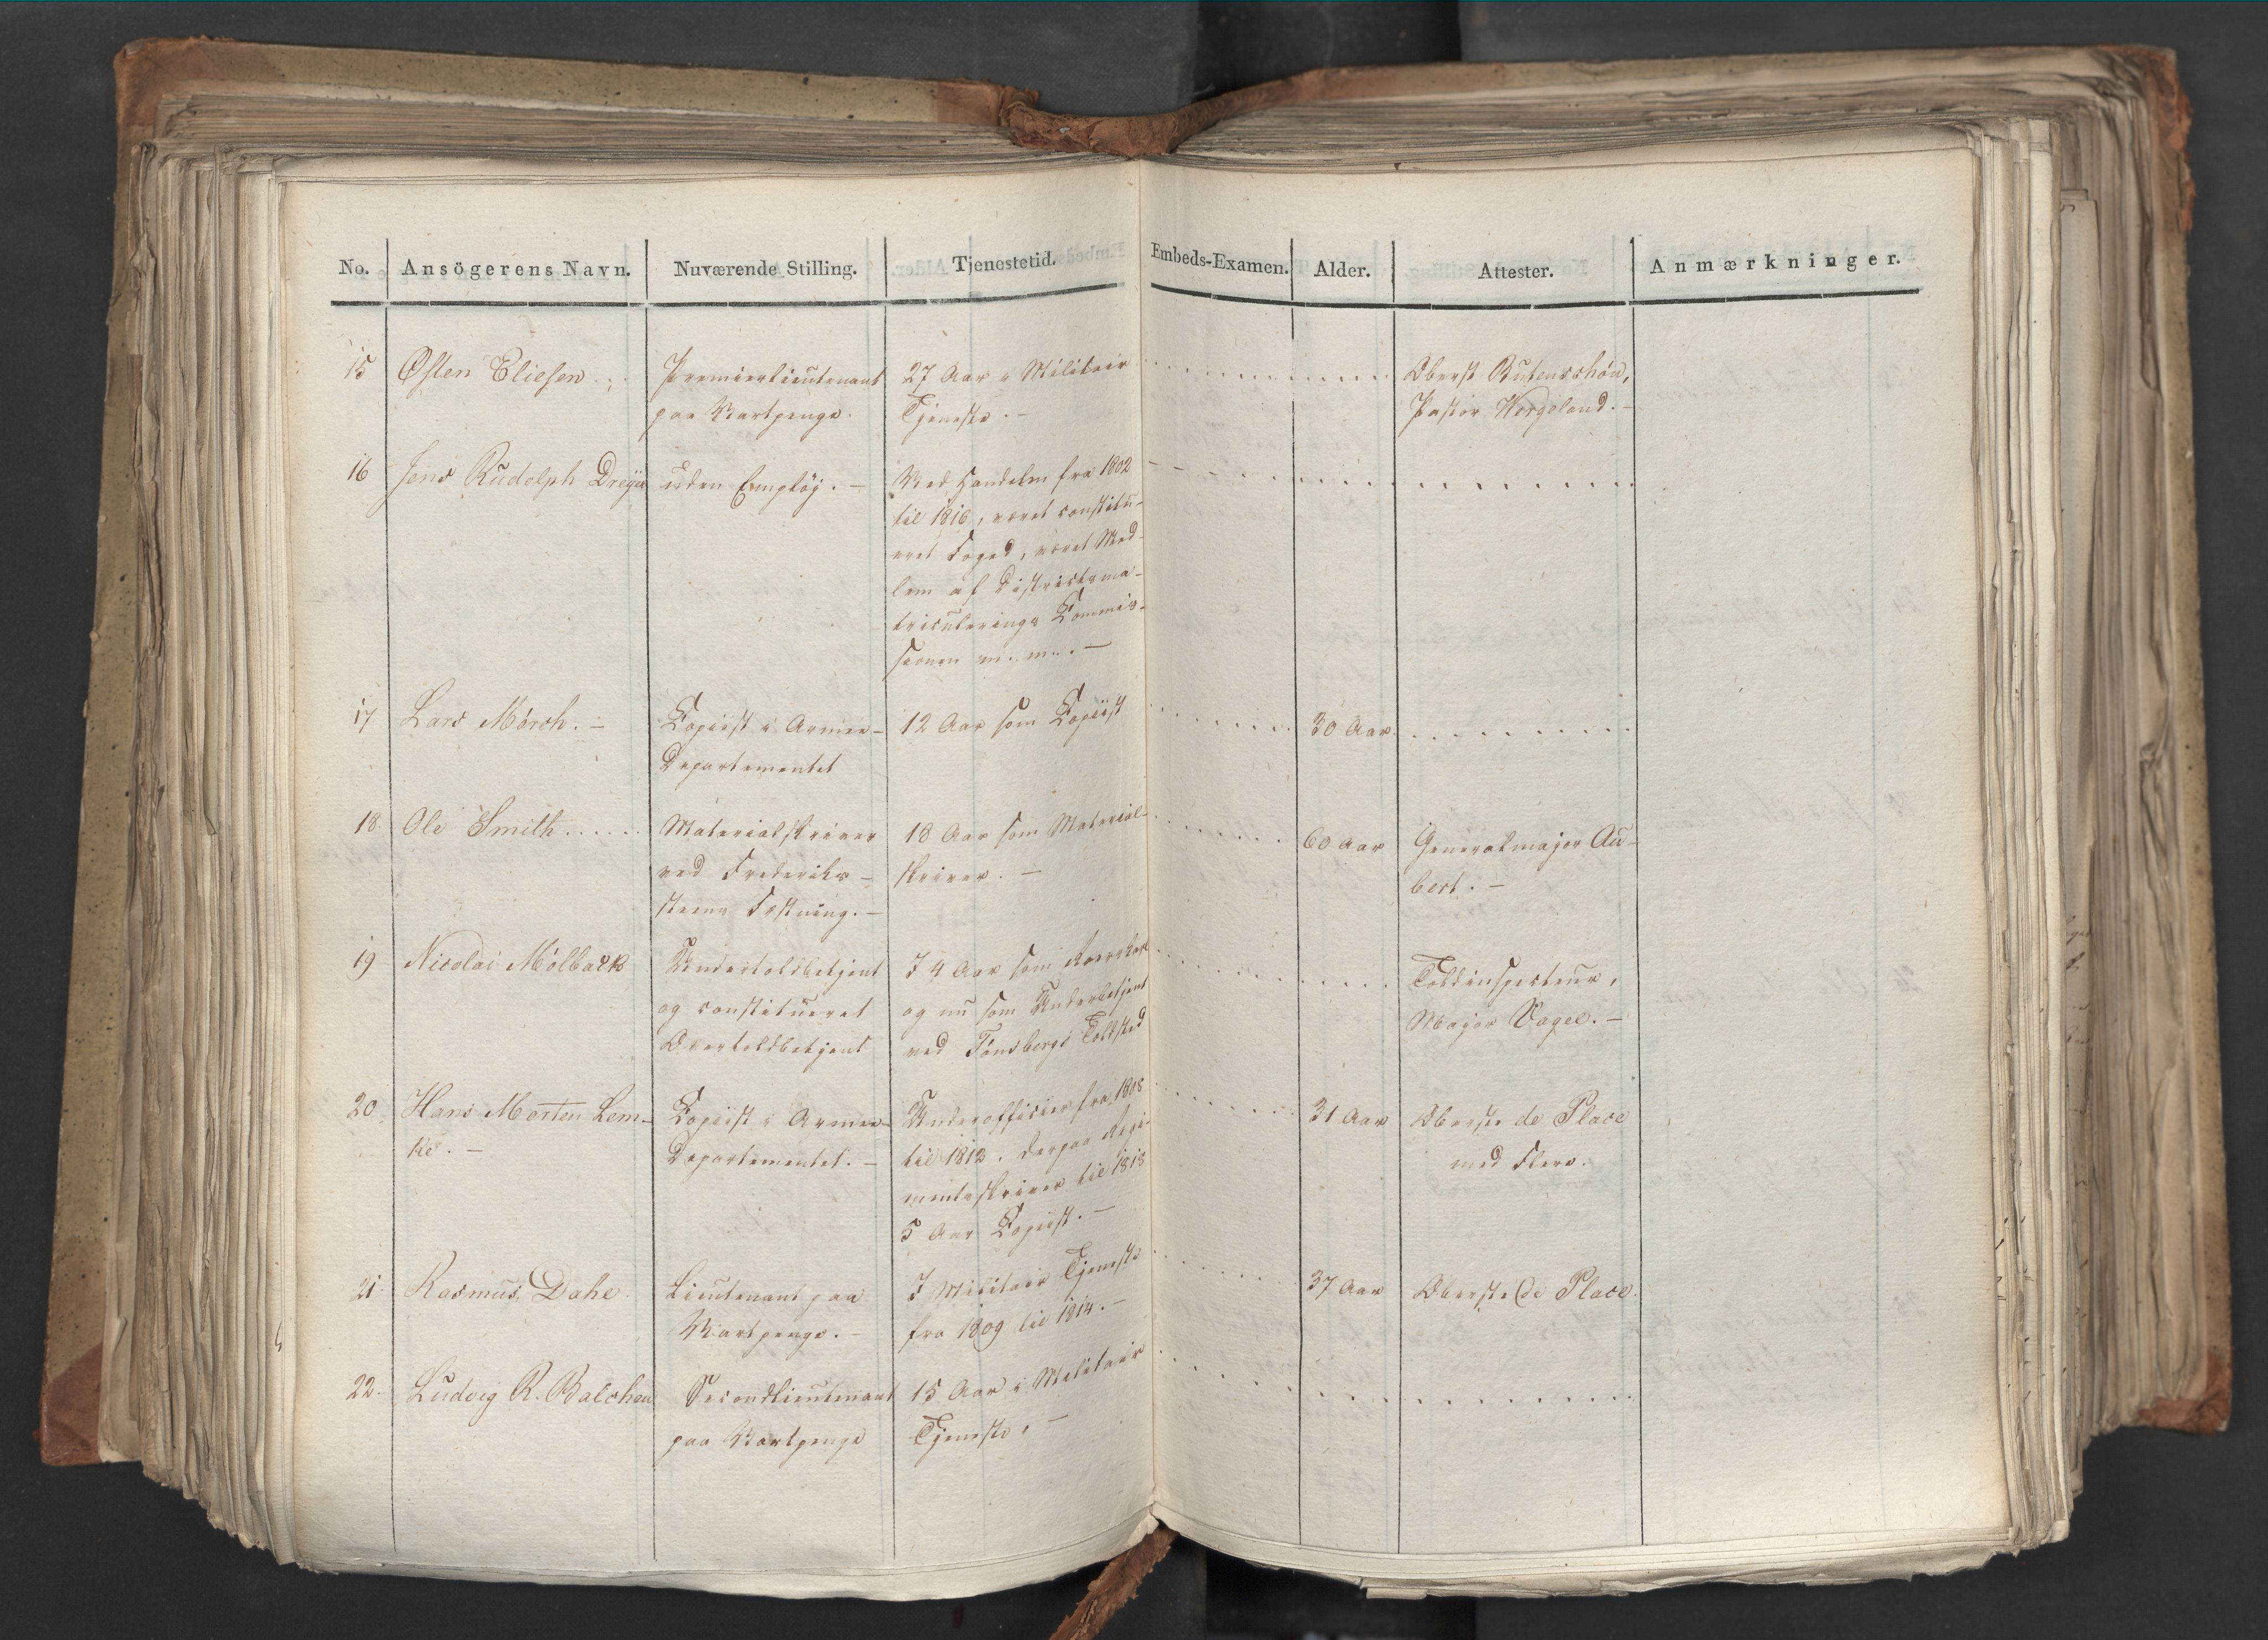 No. Ansögerens Navn. Nuværende Stilling. Tjenestetid. Embeds-Examen. Alder. Attester. Anmærkninger.
15 Østen Eliesen. Premierlieutenant 27 Aar i Militair Oberst Butenschön,
paa Vartpenge. Tjeneste. – Pastor Wergeland. –
16 Jens Rudolph uden Employ. – Ved Handelen fra 1802
til 1816, været constitu-
eret Foged, været Med-
lem af Districtsma-
triculerings Commis-
sionen m. m. –
17 Lars Mörch. – Copiist i Armee- 12 Aar som Copiist 30 Aar
Departementet
18 Ole Smith Materialskriver 18 Aar som Material- 60 Aar Generalmajor Au-
ved Frederik- skriver. – bert. –
steens Fæstning. –
19 Nicolai Mölback Undertoldbetjent I 4 Aar som Toldinspecteur,
og constitueret og nu som Underbetjent Major Vogel. –
Overtoldbetjent ved Tönsbergs Toldsted
20 Hans Morten Lem- Copiist i Armee- Underofficier fra 1808 31 Aar Oberste de Place
ke. – Departementet. – til 1813. Derpaa Regi- med Flere.
mentsskriver til 1818
5 Aar Copiist. –
21 Rasmus Dahl Lieutenant paa I Militair Tjeneste 37 Aar Oberste de Place.
Vartpenge. – fra 1809 til 1814. –
22 Ludvig R. Balchen Secondlieutenant 15 Aar i Militair
paa Vartpenge Tjeneste. –